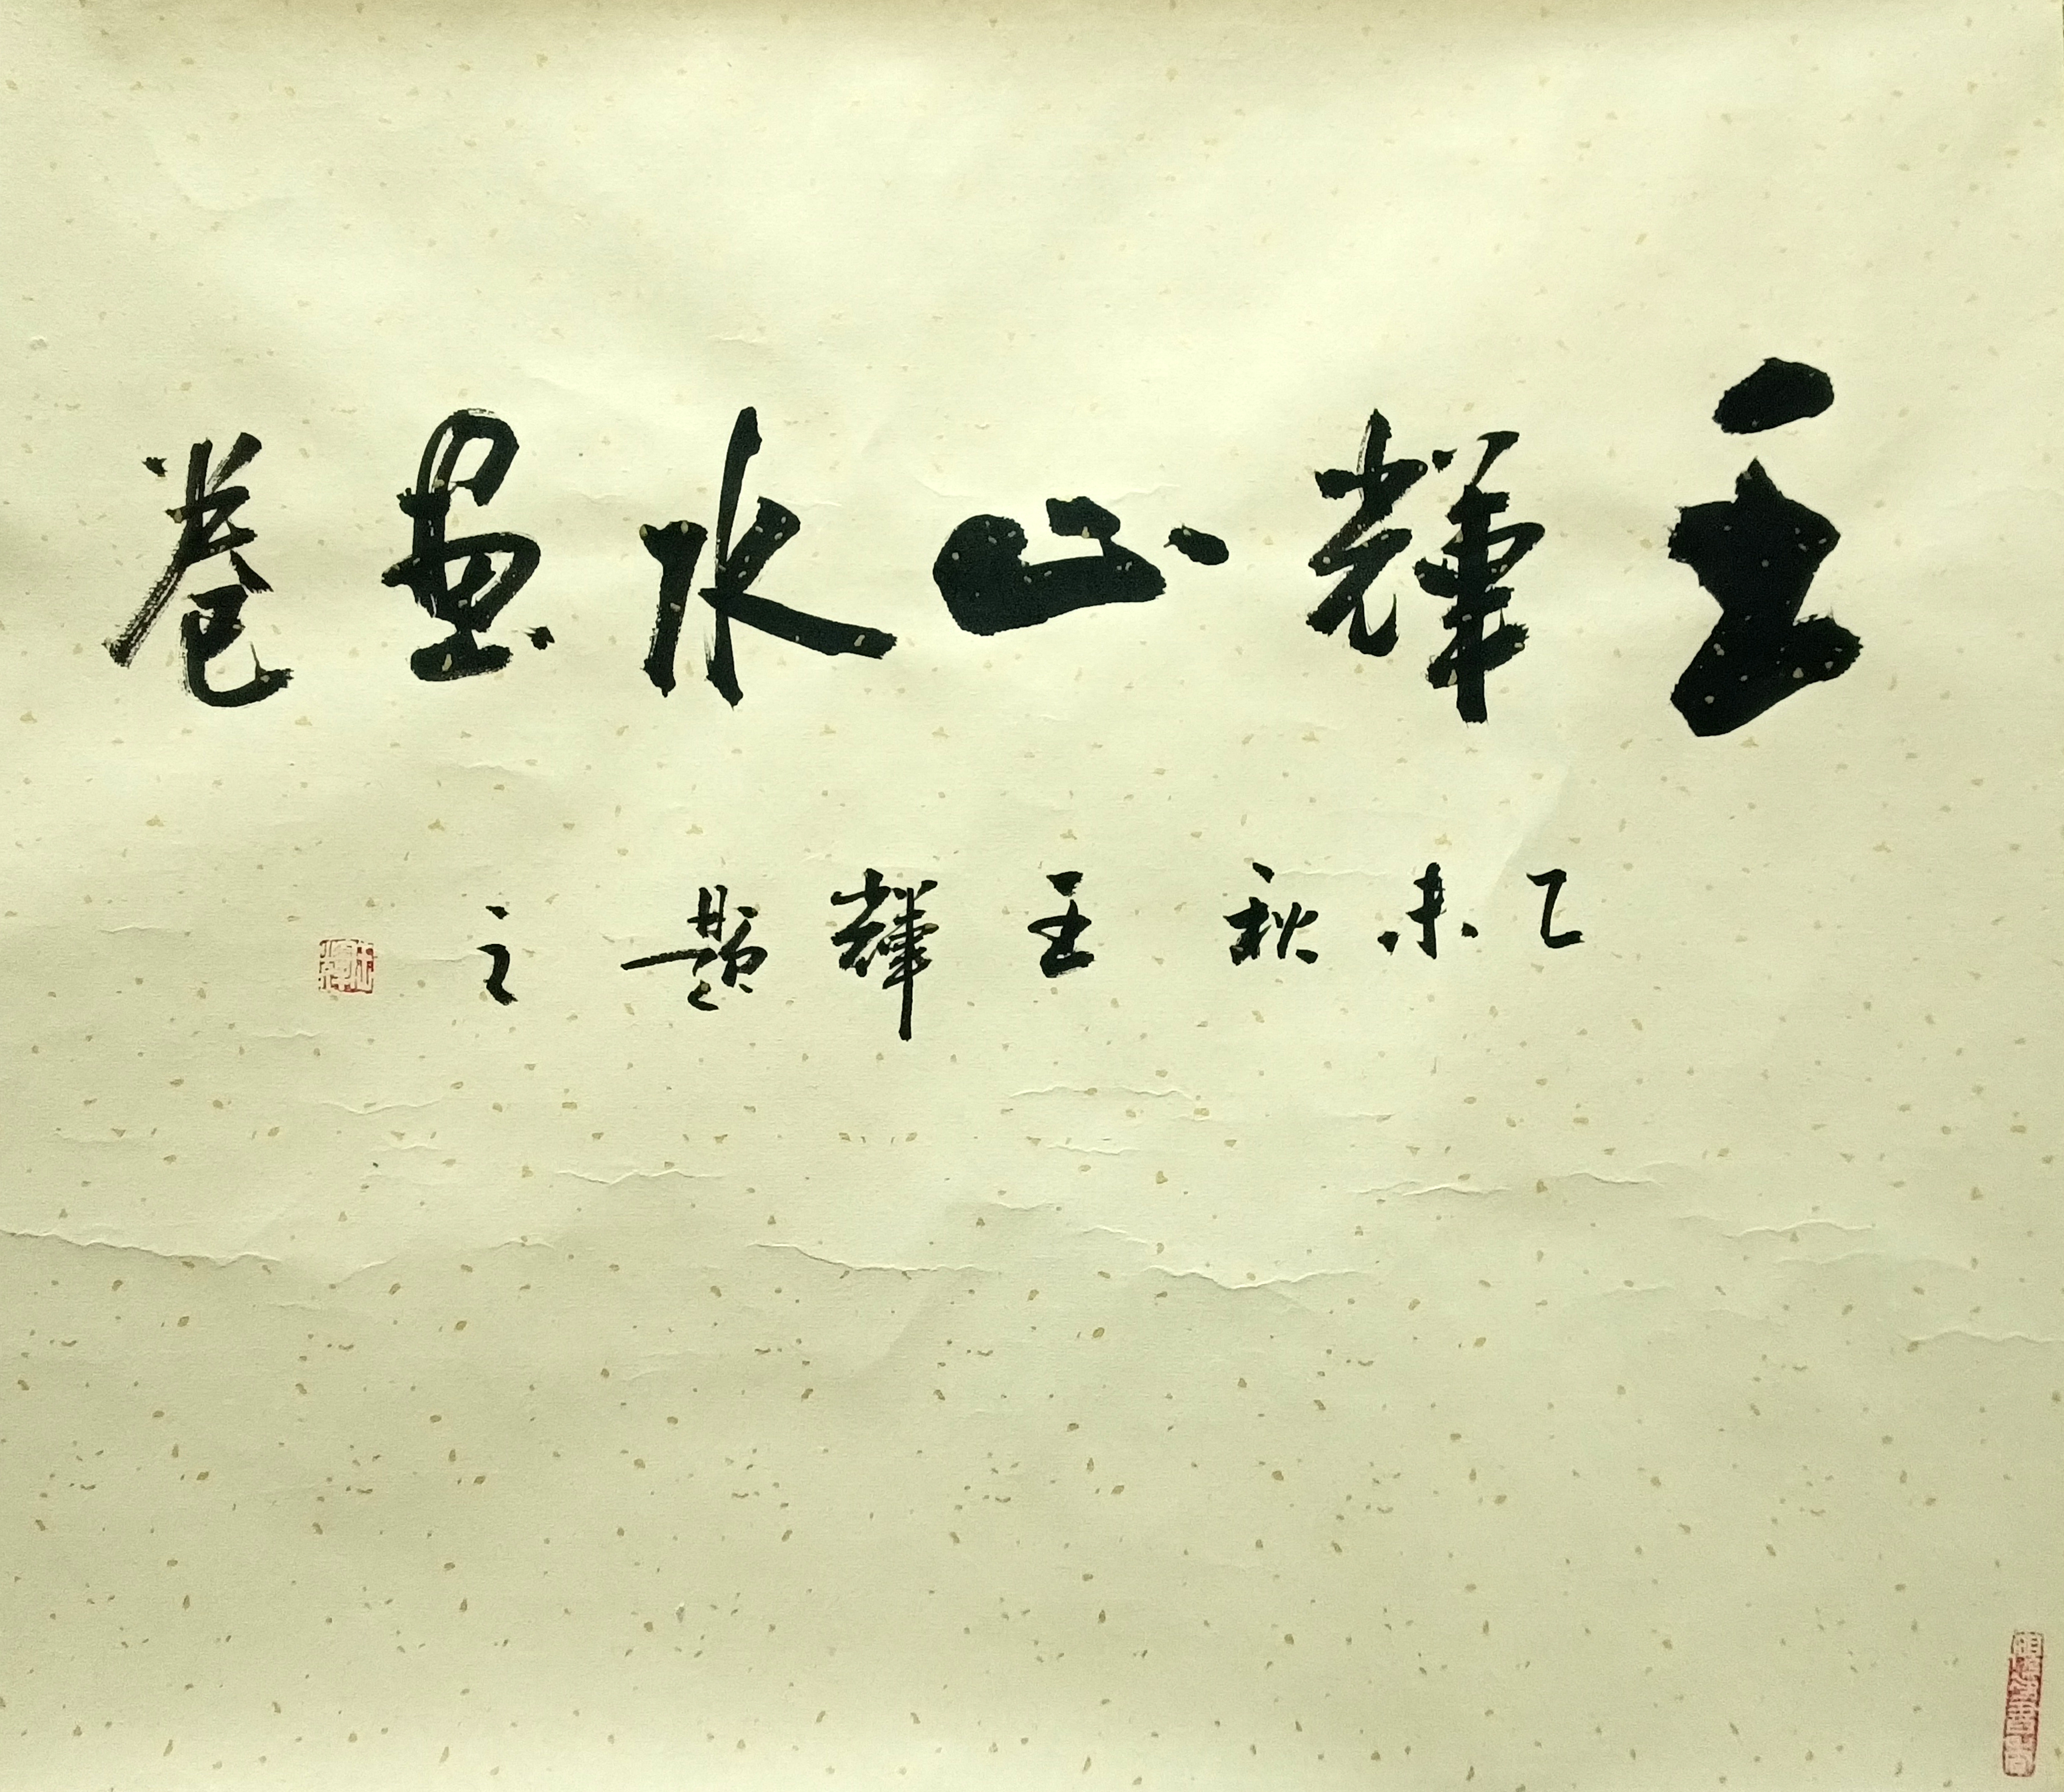 王輝山水畫卷
乙未秋王輝題之